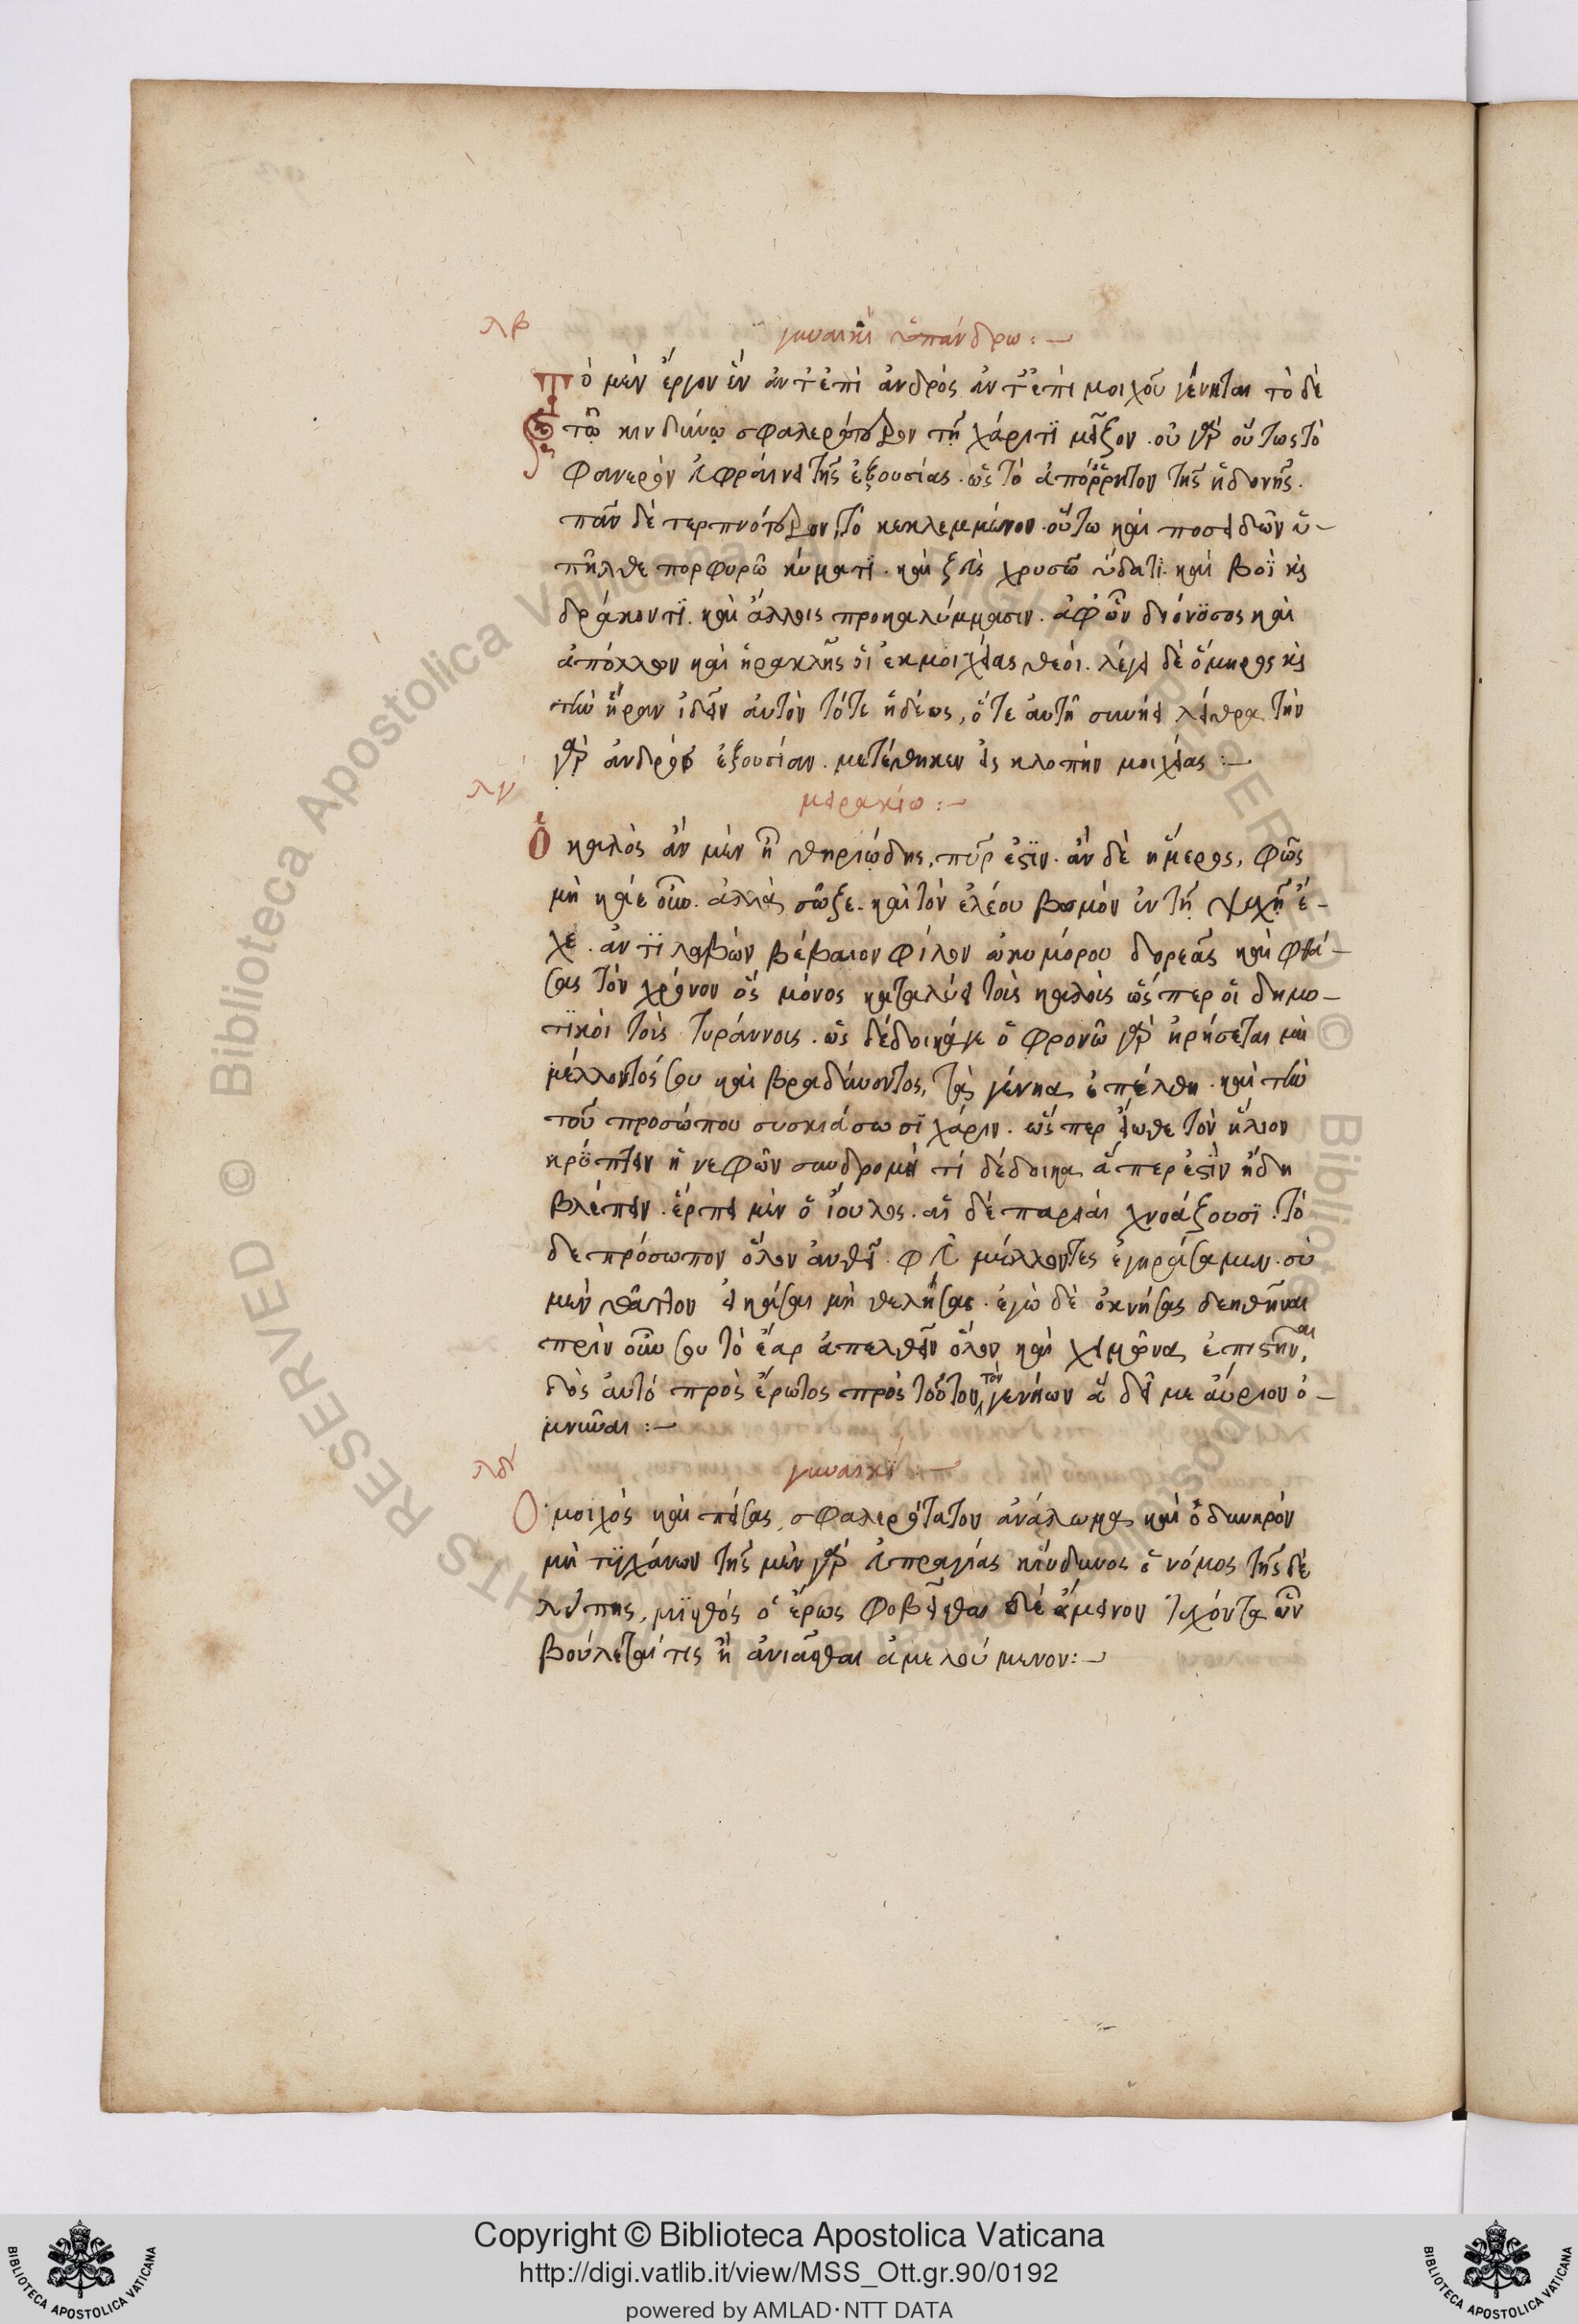 λβ
γυναικὶ ὑπάνδρω :—
Τὸ μὲν ἔργον ἓν ἄν τε ἐπὶ ἀνδρὸς ἄν τε ἐπὶ μοιχοῦ γένηται τὸ δὲ
τῶ κινδύνω σφαλερώτερον τῇ χάριτϊ μεῖζον. οὐ γὰρ οὕτως τὸ
φανερὸν εὐφραίνει τῆς ἐξουσίας. ὡς τὸ ἀπόῤῥητον τῆς ἡδονῆς.
πᾶν δὲ τερπνότερον, τὸ κεκλεμμένον. οὕτω καὶ ποσειδῶν ὑ-
πῆλθε πορφυρῶ κύματϊ. καὶ ζεὺς χρυσῶ ὕδατϊ. καὶ βοϊ καὶ
δράκοντϊ. καὶ ἄλλοις προκαλύμμασιν. ἀφ' ὧν διόνϋσος καὶ
ἀπόλλων καὶ ἡρακλῆς οἱ ἐκ μοιχείας θεοί. λέγει δὲ ὅμηρος καὶ
τὴν ἥραν ἰδεῖν αὐτὸν τότε ἡδέως, ὅτε αὐτῆ συνήει λάθρα τὴν
γὰρ ἀνδρὸς ἐξουσίαν. μετέθηκεν εἰς κλοπὴν μοιχείας :—
λγ
μειρακίω :—
Ὁ καλὸς ἂν μὲν ἦ θηριώδης, πῦρ ἐστϊν. ἂν δὲ ἥμερος, φῶς
μὴ καίε οὖν. ἀλλὰ σῶζε. καὶ τὸν ἐλέου βωμὸν ἐν τῇ ψυχῇ ἔ-
χε. ἀντϊλαβὼν βέβαιον φίλον ὠκυμόρου δωρεᾶς καὶ φθά-
σας τὸν χρόνον ὃς μόνος καταλύει τοὺς καλοὺς ὥσπερ οἱ δημο-
τϊκοὶ τοὺς τυράννους. ὡς δέδοικά γε ὃ φρονῶ γὰρ εἰρήσεται μὴ
μέλλοντός σου καὶ βραδύνοντος, τὰ γένεια ἐπέλθη. καὶ τὴν
τοῦ προσώπου συσκιάσωσϊ χάριν. ὥσπερ εἴωθε τὸν ἥλιον
κρύπτειν ἡ νεφῶν συνδρομὴ τί δέδοικα ἅπερ ἐστϊν ἤδη
βλέπειν. ἕρπει μὲν ὁ ἴουλος. αἱ δὲ παρειαὶ χνοάζουσϊ. τὸ
δε πρόσωπον ὅλον ἀνθεῖ. φεῦ μέλλοντες ἐγηράσαμεν. σὺ
μὲν θᾶττον εἰκάσαι μὴ θελήσας. ἐγὼ δὲ ὀκνήσας δεηθῆναι
πρὶν οὖν σου τὸ ἔαρ ἀπελθεῖν ὅλον καὶ χειμῶνα ἐπιστῆναι,
δὸς αὐτὸ πρὸς ἔρωτος πρὸς τούτον τὸν γενείων ἃ δεῖ με αὔριον ὀ-
μνῦναι :—
λδ
γυναικϊ :—
Ὁ μοιχὸς καὶ πείσας, σφαλερώτατον ἀνάλωμα καὶ ὀδυνηρὸν
μὴ τϋχάνων τῆς μὲν γὰρ εὐπραγίας κίνδυνος ὁ νόμος τῆς δὲ
λύπης, μϊσθὸς ὁ ἔρως φοβεῖσθαι δὲ ἄμεινον τυχόντα ὧν
βούλεταί τις ἢ ἀνιᾶσθαι ἀμελούμενον :—
Copyright © Biblioteca Apostolica Vaticana
http://digi.vatlib.it/view/MSS_Ott.gr.90/0192
powered by AMLAD·NTT DATA